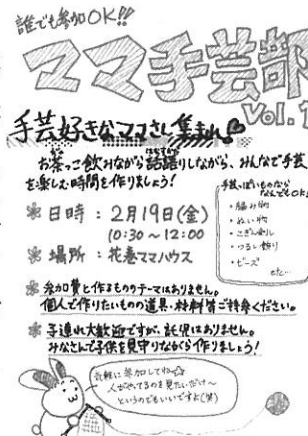 誰でも参加OK!!
ママ手芸部
Vol.1
手芸好きなママさん集まれ
お茶っこ飲みながら話語りしながら、みんなで手芸
を楽しむ時間を作りましょう!
手芸っぽいものなら
なんでもOK!
・編み物
・ぬい物
・こぎん刺し
・つるし飾り
・ビーズ
etc...
日時:2月19日(金)
10:30~12:00
場所:花巻ママハウス
参加費と作るもののテーマはありません。
個人で作りたいものの道具・材料等ご持参ください。
子連れ大歓迎ですが、託児はありません。
みなさんで子供を見守りながら作りましょう!
気軽に参加してね☆
人がやってるのを見たいだけ~
というのでもいいですよ(笑)